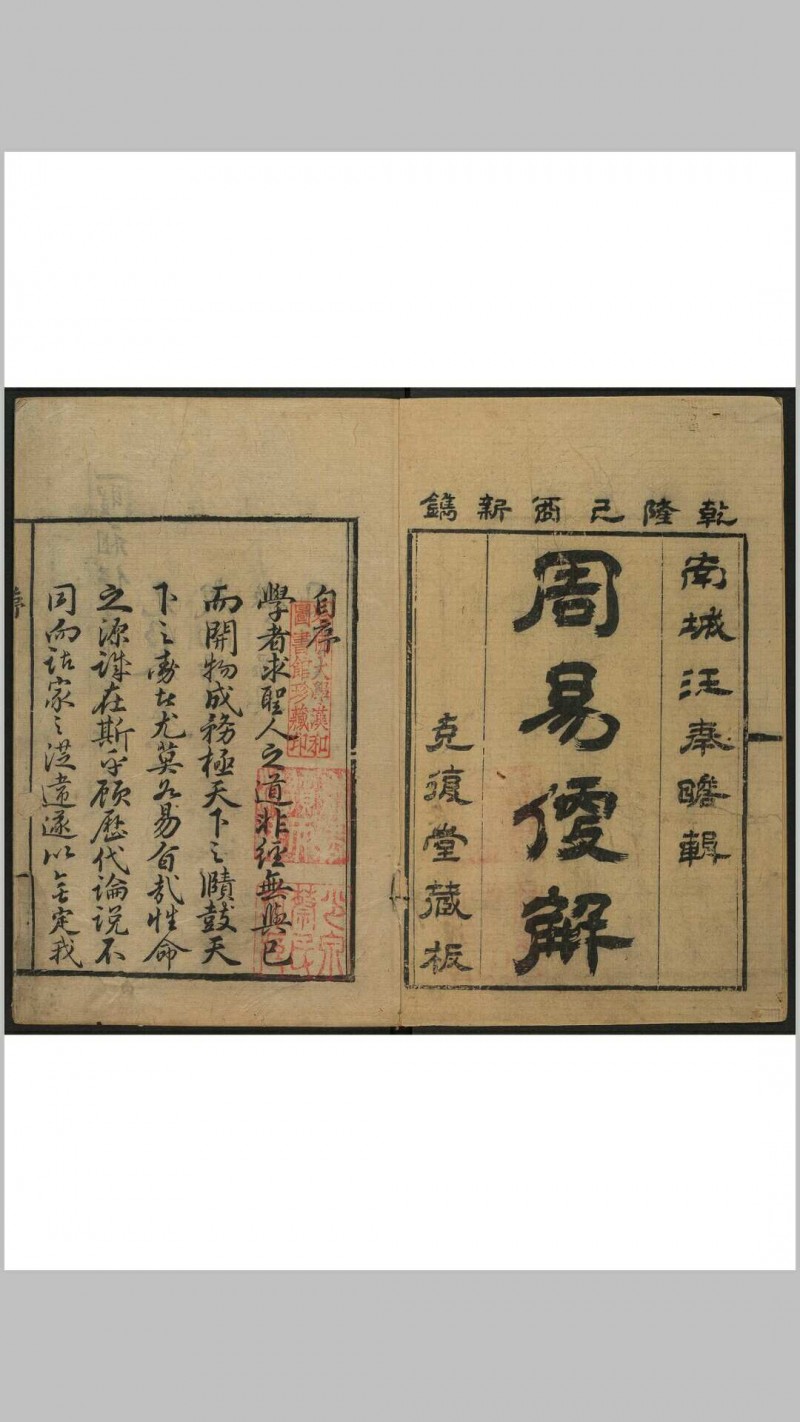 乾隆己酉新鐫
南城汪奉瞻輯
周易便解
克復堂藏板
自序
學者求聖人之道非經無與已
而開物成務極天下之賾鼓天
下之動者尤莫若易旨哉性命
之源誠在斯乎顧歷代論說不
同而諸家之從違遂以無定我
大學漢和
圖書館珍藏印
序